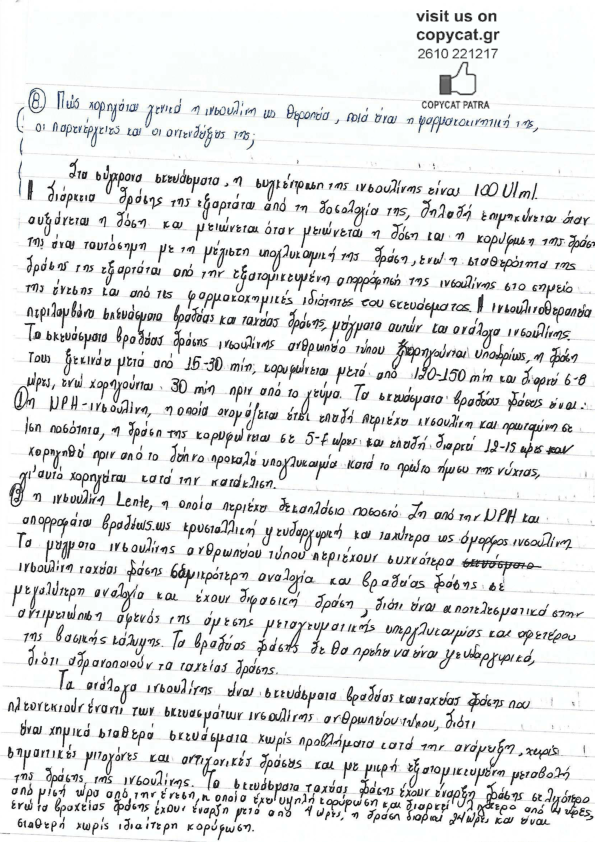 visit us on
copycat.gr
2610 221217
COPYCAT PATRA
8. Πώς χορηγείται γενικά η ινσουλίνη ως θεραπεία, ποιά είναι η φαρμακοκινητική της,
οι παρενέργειες και οι αντενδείξεις της;
Στα σύγχρονα σκευάσματα, η συγκέντρωση της ινσουλίνης είναι 100 U/ml.
Η διάρκεια δράσης της εξαρτάται από τη δοσολογία της, δηλαδή επιμηκύνεται όταν
αυξάνεται η δόση και μειώνεται όταν μειώνεται η δόση και η κορύφωση της δράσης
της είναι ταυτόσημη με τη μέγιστη υπογλυκαιμική της δράση, ενώ η σταθερότητα της
δράσης της εξαρτάται από την εξατομικευμένη απορρόφηση της ινσουλίνης στο σημείο
της ένεσης και από τις φαρμακοχημικές ιδιότητες του σκευάσματος. Η ινσουλινοθεραπεία
περιλαμβάνει σκευάσματα βραδείας και ταχείας δράσης, μείγματα αυτών και ανάλογα ινσουλίνης.
Τα σκευάσματα βραδείας δράσης ινσουλίνης ανθρωπείου τύπου χορηγούνται υποδορίως, η δράση
τους ξεκινάει μετά από 15-30 min, κορυφώνεται μετά από 120-150 min και διαρκεί 6-8
ώρες, ενώ χορηγούνται 30 min πριν από το γεύμα. Τα σκευάσματα βραδείας δράσης είναι:
1 η NPH-ινσουλίνη, η οποία ονομάζεται έτσι επειδή περιέχει ινσουλίνη και πρωταμίνη σε
ίση ποσότητα, η δράση της κορυφώνεται σε 5-7 ώρες και επειδή διαρκεί 12-15 ώρες και
χορηγηθεί πριν από το δείπνο προκαλεί υπογλυκαιμία κατά το πρώτο ήμισυ της νύχτας,
γι'αυτό χορηγείται κατά την κατάκλιση.
2 η ινσουλίνη Lente, η οποία περιέχει δεκαπλάσιο ποσοστό Zn από την NPH και
απορροφάται βραδέως ως κρυσταλλική ψευδαργυρική και ταχύτερα ως άμορφος ινσουλίνη
Τα μείγματα ινσουλίνης ανθρωπείου τύπου περιέχουν συχνότερα σκευάσματα
ινσουλίνη ταχείας δράσης σε μικρότερη αναλογία και βραδείας δράσης σε
μεγαλύτερη αναλογία και έχουν διφασική δράση, διότι είναι αποτελεσματικά στην
αντιμετώπιση αφενός της άμεσης μεταγευματικής υπεργλυκαιμίας και αφετέρου
της βασικής κάλυψης. Τα βραδείας δράσης δε θα πρέπει να είναι ψευδαργυρικά,
διότι αδρανοποιούν τα ταχείας δράσης.
Τα ανάλογα ινσουλίνης είναι σκευάσματα βραδείας και ταχείας δράσης που
πλεονεκτούν έναντι των σκευασμάτων ινσουλίνης ανθρωπείου τύπου, διότι
είναι χημικά σταθερά σκευάσματα χωρίς προβλήματα κατά την ανάμειξη, χωρίς
σημαντικές μιτογόνες και αντιγονικές δράσεις και με μικρή εξατομικευμένη μεταβολή
της δράσης της ινσουλίνης. Τα σκευάσματα ταχείας δράσης έχουν έναρξη δράσης σε λιγότερο
από μισή ώρα από την ένεση, η οποία έχει υψηλή κορύφωση και διαρκεί λιγότερο από 4 ώρες,
ενώ τα βραχείας δράσης έχουν έναρξη μετά από 1 ώρες, η δράση διαρκεί 24 ώρες και είναι
σταθερή χωρίς ιδιαίτερη κορύφωση.